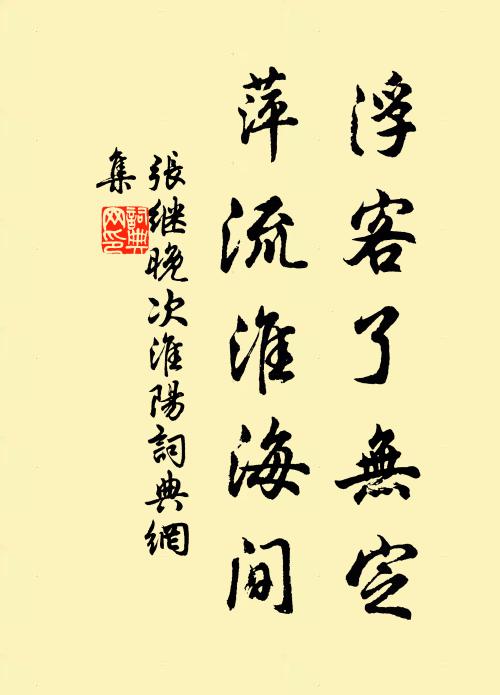 浮客了無定
萍流淮海間
張继晚次淮陽詞典網
集
詞典网印